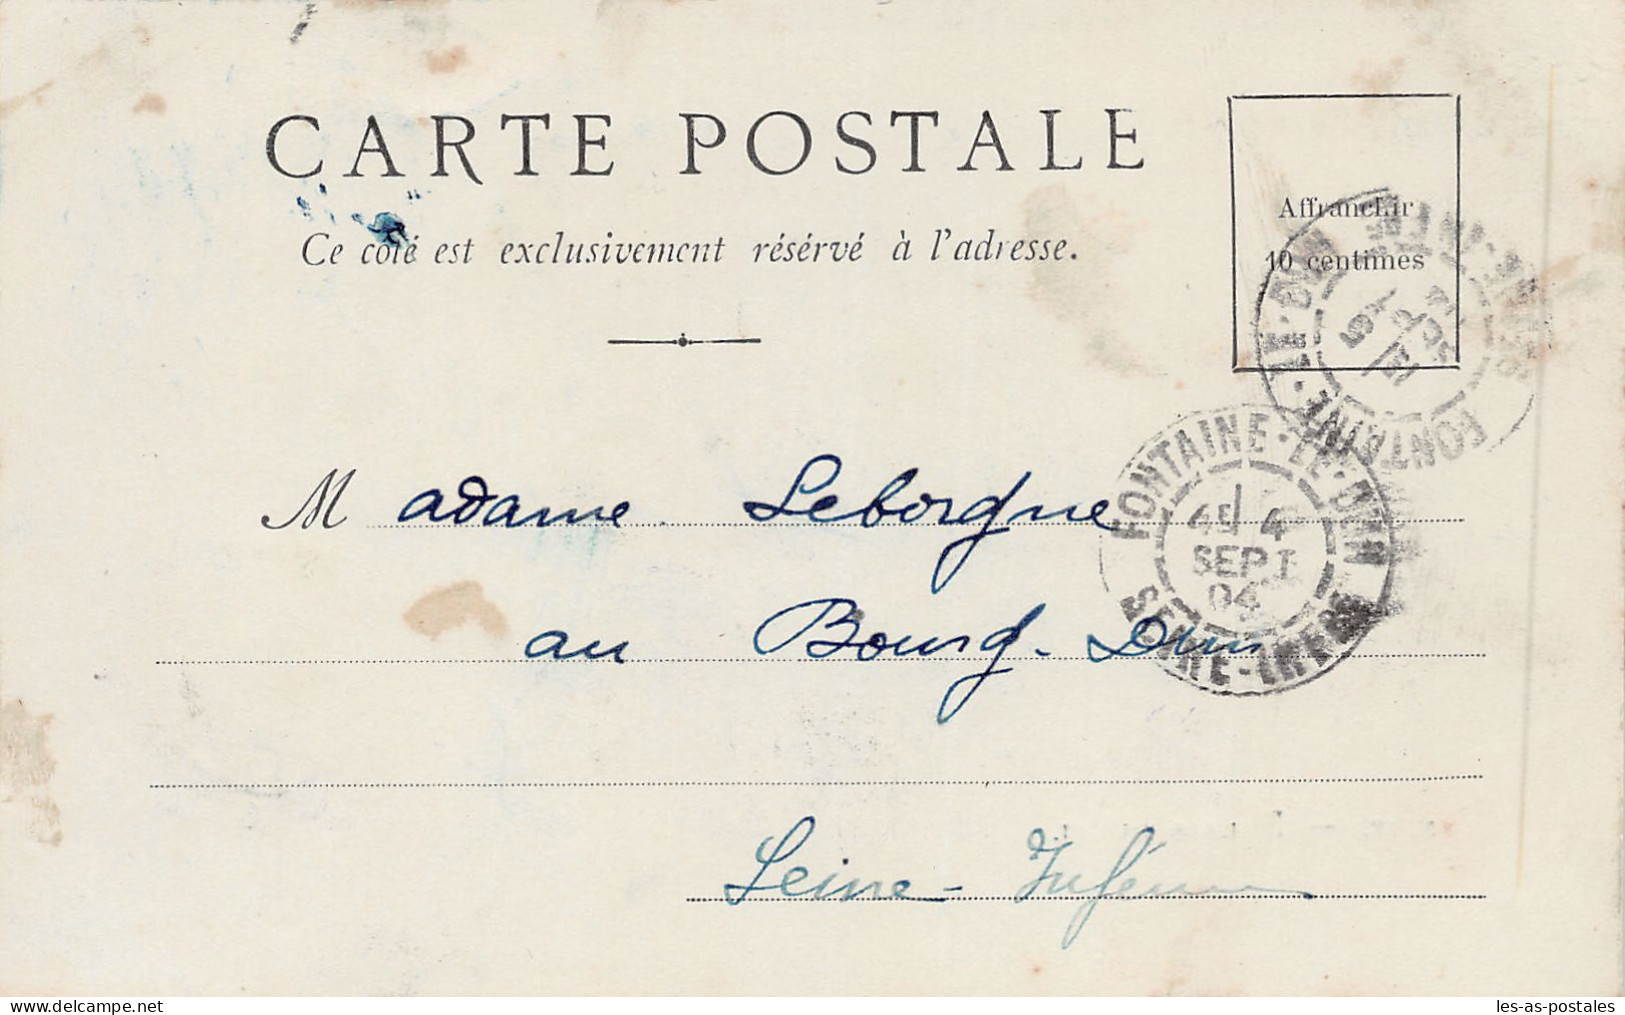 CARTE POSTALE
Ce coté est exclusivement réservé à l'adresse.
Affranchir
10 centimes
FONTAINE-LE-DUN
SEPT
04
SEINE-INFRE
Madame Leborgne
au Bourg-Dun
Seine-Inférieure
www.delcampe.net
les-as-postales